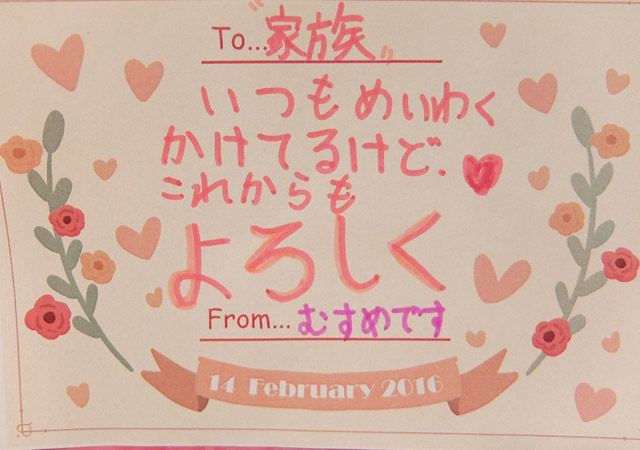 To... "家族"
いつもめいわく
かけてるけど、
これからも
よろしく
From... むすめです
14 February 2016